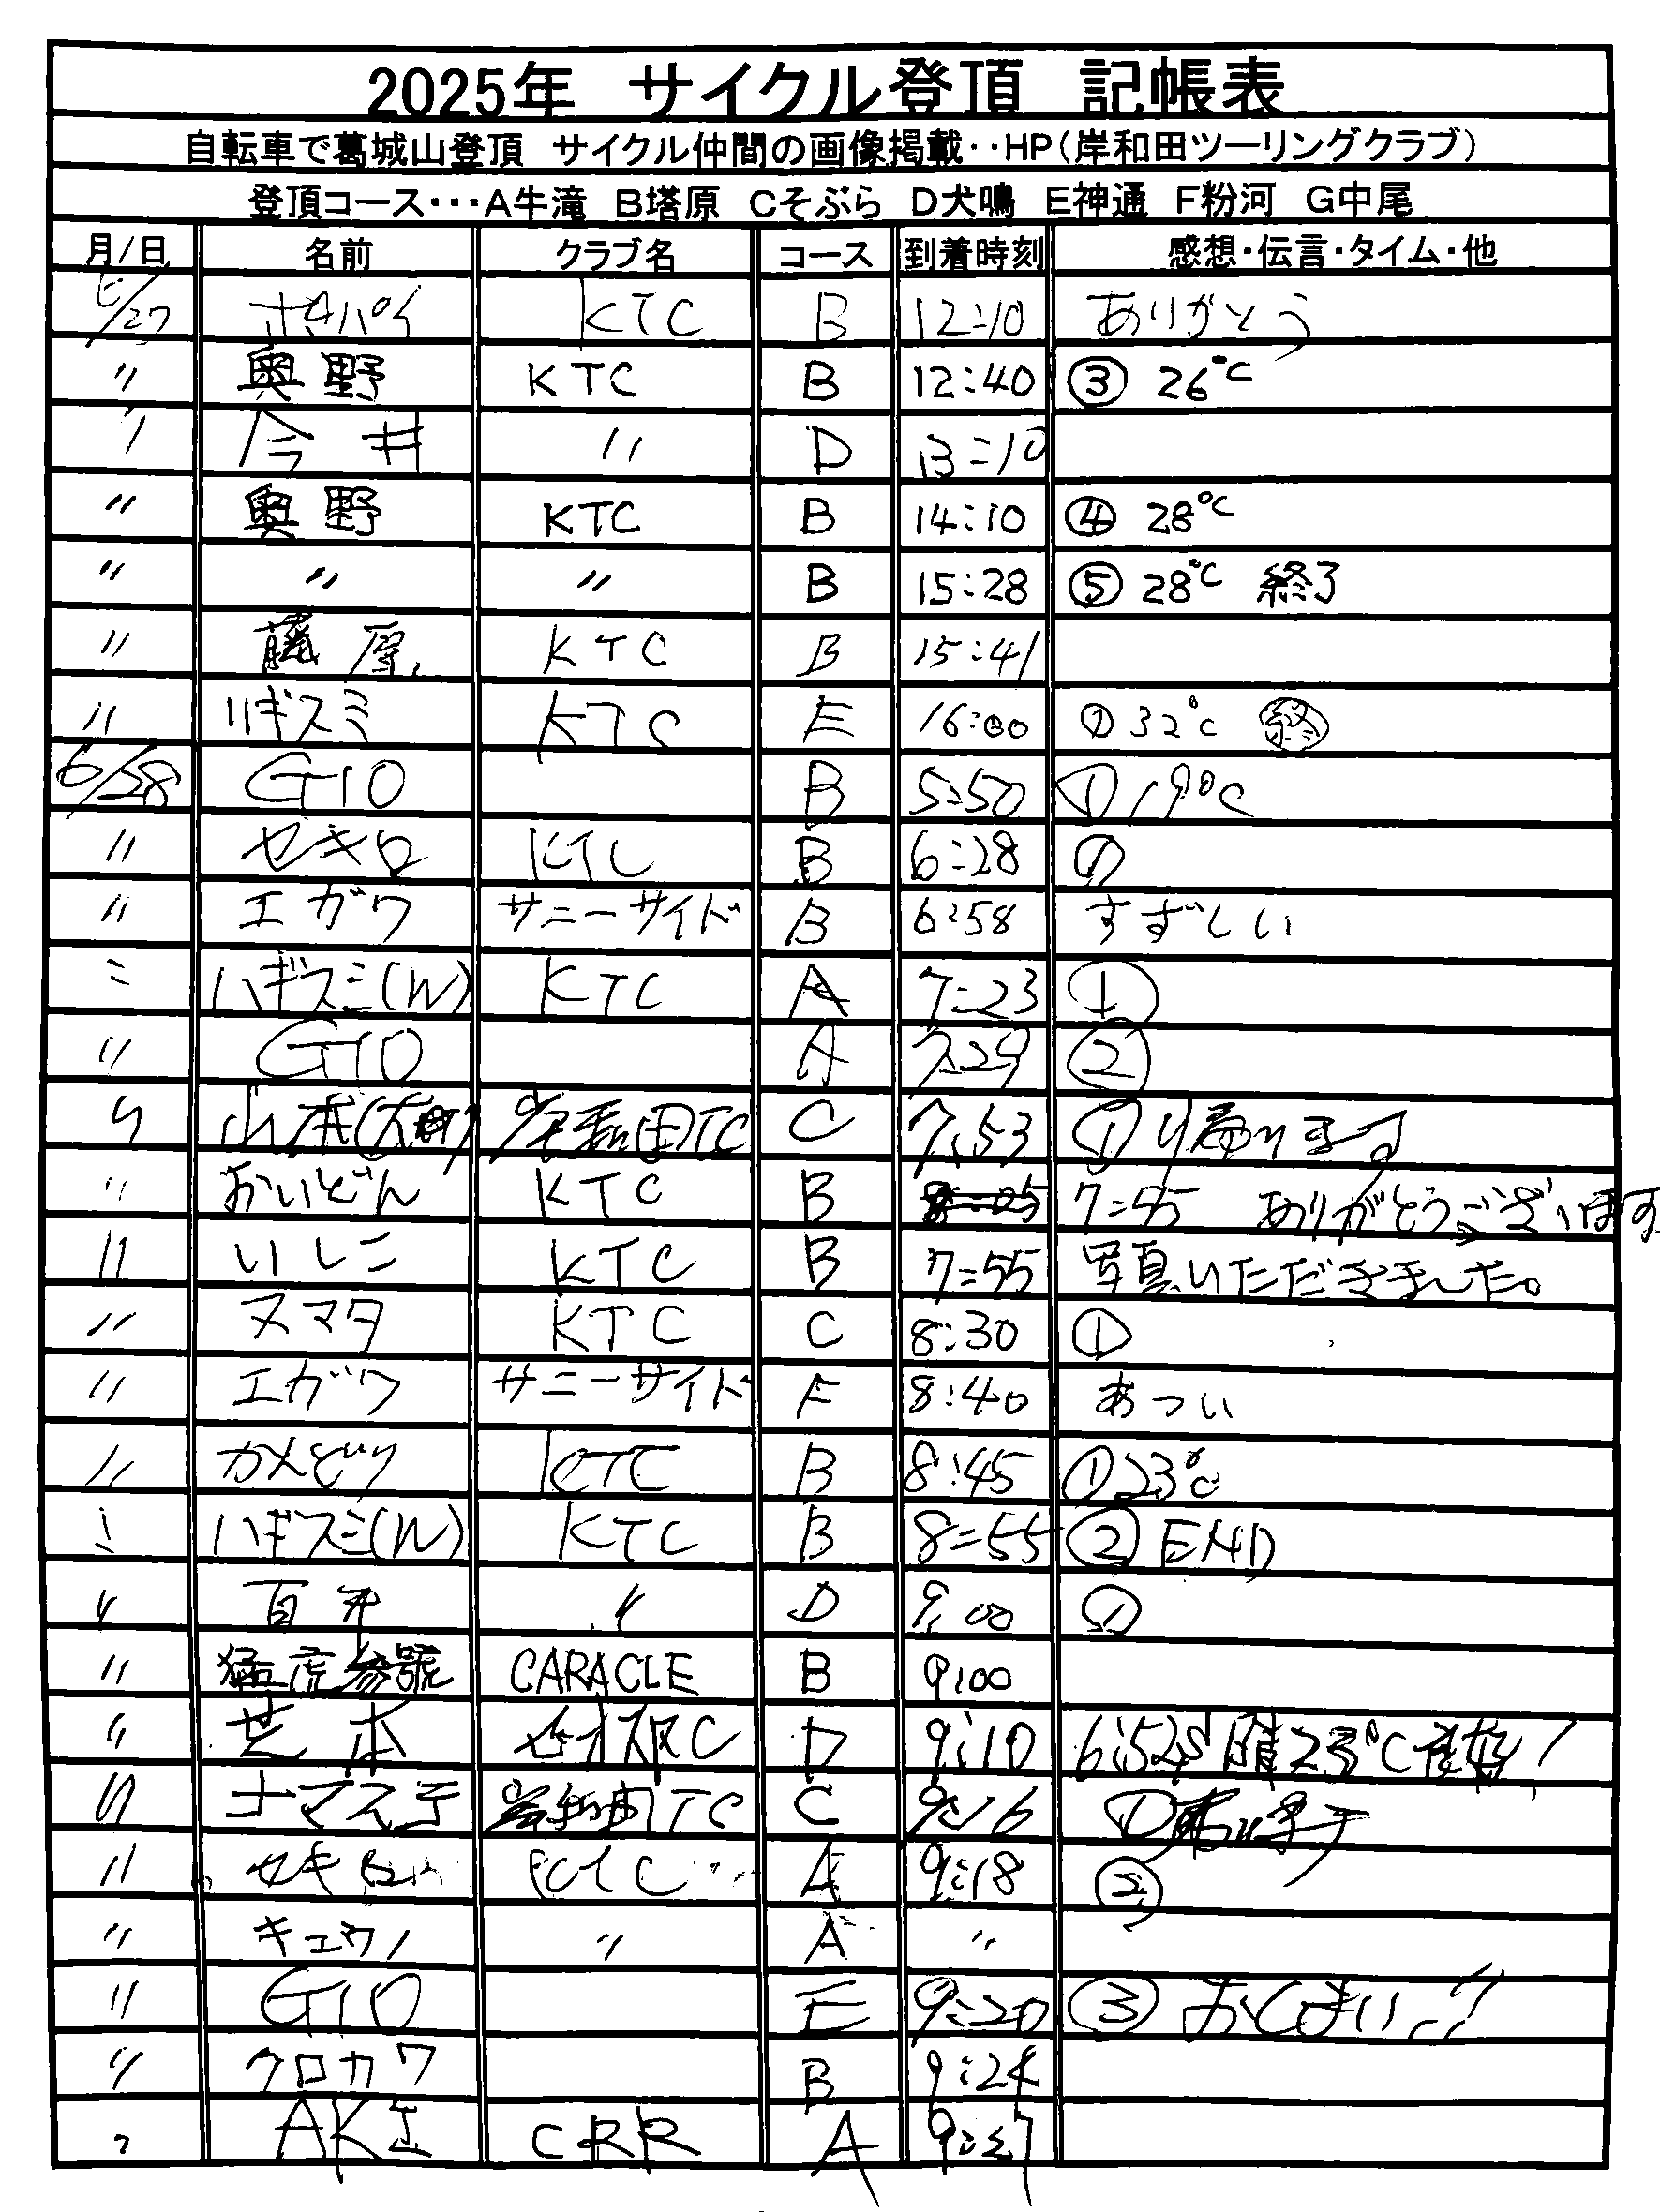 2025年 サイクル登頂 記帳表
自転車で葛城山登頂 サイクル仲間の画像掲載‥HP(岸和田ツーリングクラブ)
登頂コース･･･A牛滝 B塔原 Cそぶら D犬鳴 E神通 F粉河 G中尾
月/日 名前 クラブ名 コース 到着時刻 感想・伝言・タイム・他
6/27 ポパイ KTC B 12:10 ありがとう
〃 奥野 KTC B 12:40 ③ 26℃
〃 今井 〃 D 13:10
〃 奥野 KTC B 14:10 ④ 28℃
〃 〃 〃 B 15:28 ⑤ 28℃ 終了
〃 藤原 KTC B 15:41
〃 ハギスミ KTC E 16:00 ① 32℃ 終
6/28 GIO B 5:50 ① 19℃
〃 セキロ KTC B 6:28 ①
〃 エガワ サニーサイド B 6:58 すずしい
〃 ハギスミ(W) KTC A 7:23 ①
〃 GIO A 7:29 ②
〃 山本 岸和田TC C 7:53 ① ります
〃 おいどん KTC B 8:05 7:55 ありがとうございます
〃 いしこ KTC B 7:55 写真いただきました。
〃 ヌマタ KTC C 8:30 ①
〃 エガワ サニーサイド F 8:40 あつい
〃 カメどり KTC B 8:45 ① 23℃
〃 ハギスミ(W) KTC B 8:55 ② END
〃 百井 〃 D 9:00 ①
〃 猛虎参號 CARACLE B 9:00
〃 芝本 D 9:10 6:52 晴 23℃
〃 ナマステ 岸和田TC C 9:16 ①
〃 セキロ KTC A 9:18 ②
〃 キュウリ 〃 A 〃
〃 GIO E 9:20 ③ おしまい!!
〃 クロカワ B 9:24
〃 AKI CRR A